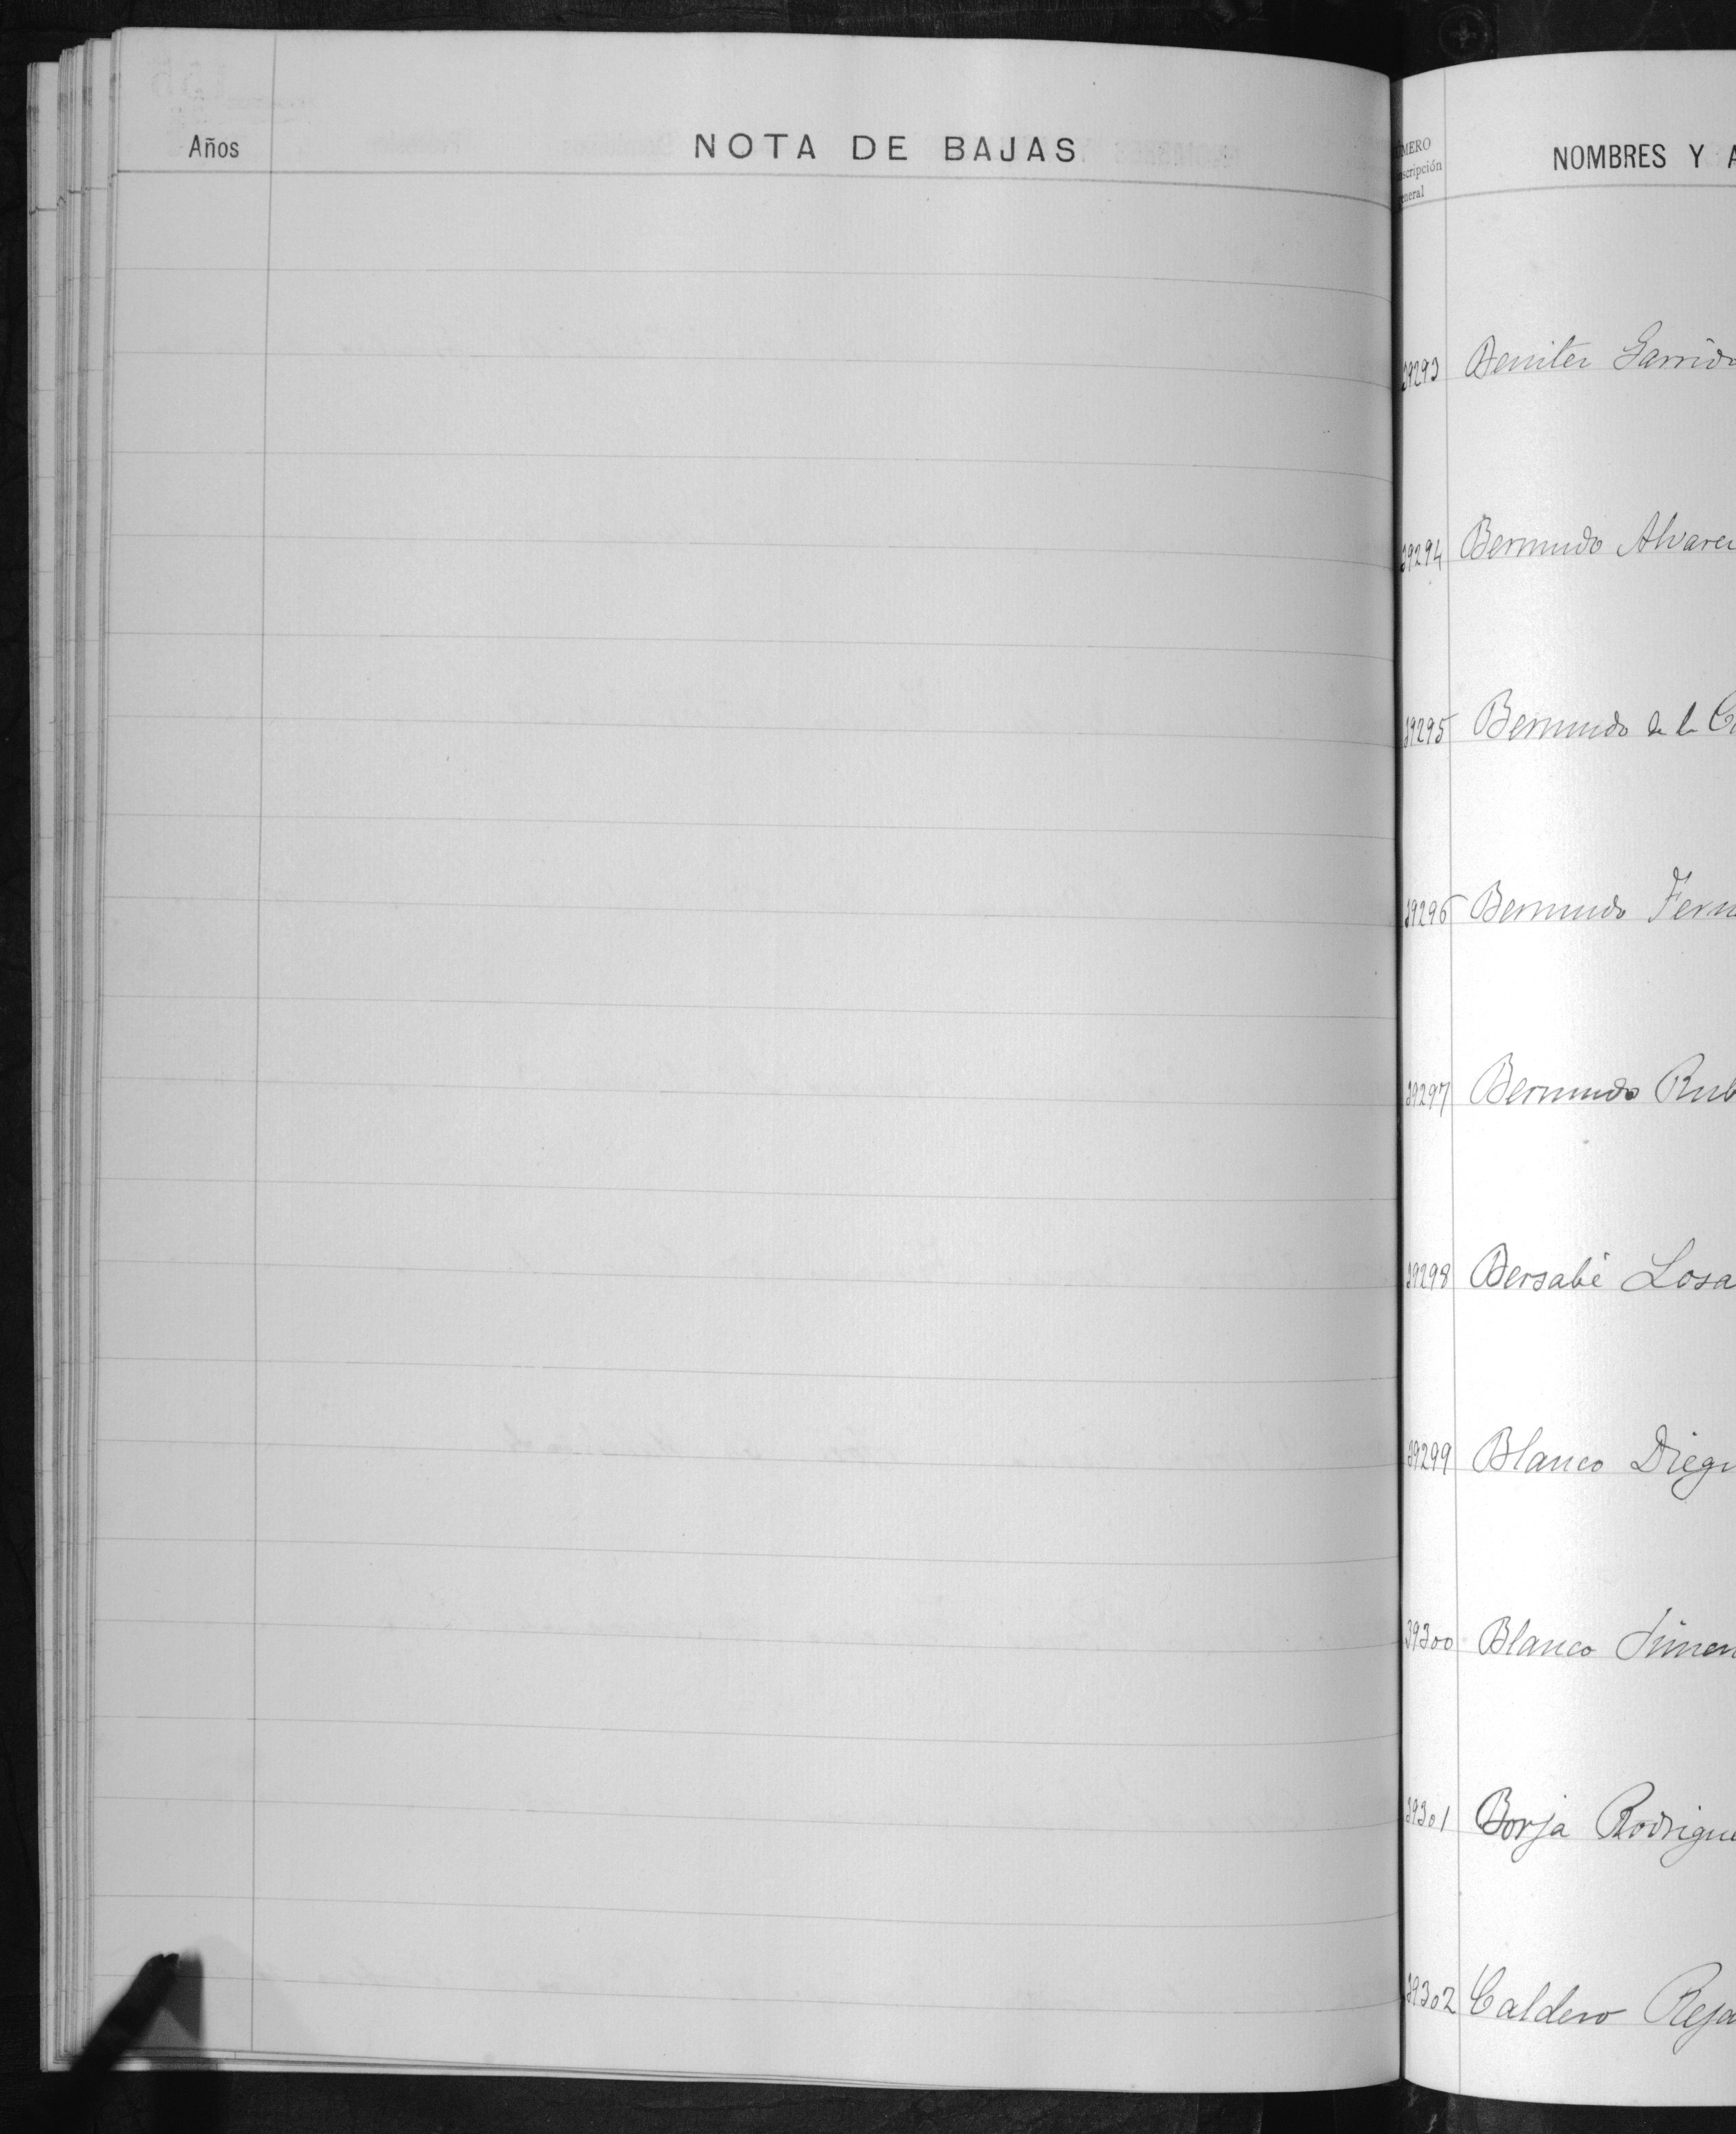 Años NOTA DE BAJAS
NOMBRES Y A
39293 Beniter Garrido
39294 Bermudo Alvarez
39295 Bermudo de la
39296 Bermudo Fern
39297 Bermudo Rub
39298 Bersabé Losa
39299 Blanco Diegu
39300 Blanco Jimen
39301 Borja Rodrigue
39302 Caldero Reja